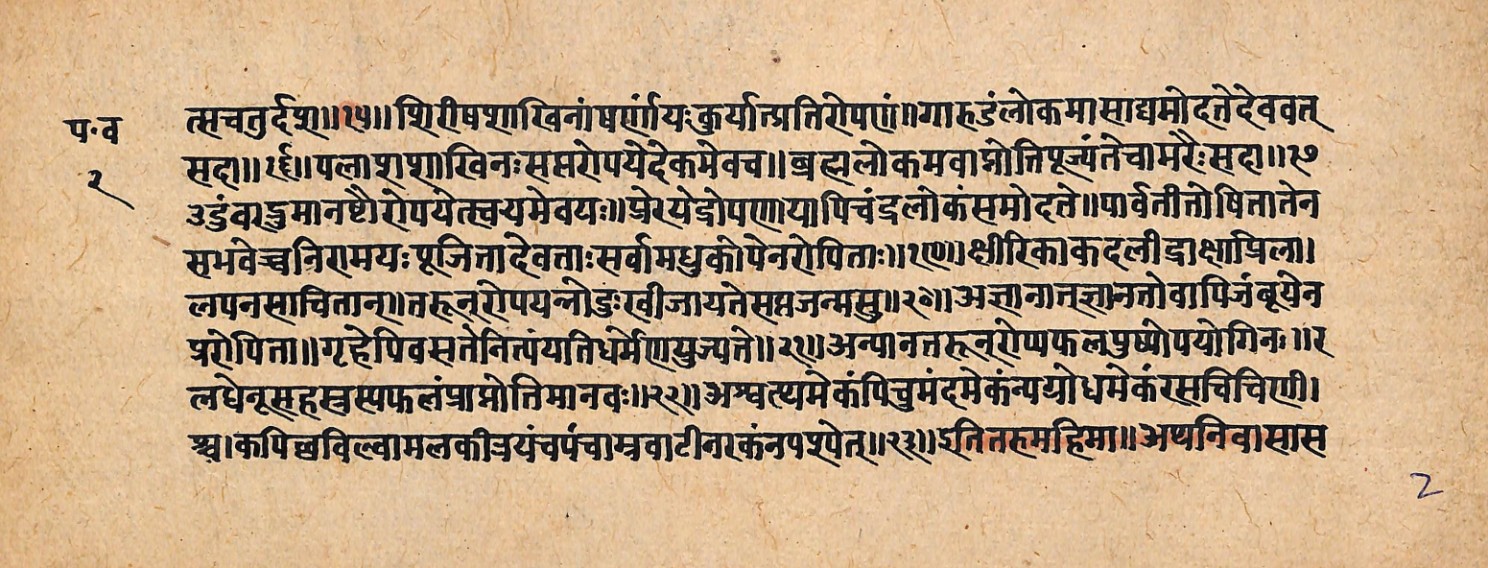 प॰व
२
त्सचतुर्दश॥१५॥शिरीषशाखिनांषर्णांयःकुर्यात्प्रतिरोपणं॥गारुडंलोकमासाद्यमोदतेदेववत्
सदा॥१६॥पलाशशाखिनःसप्तरोपयेदेकमेवच॥ब्रह्मलोकमवाप्नोतिपूज्यंतेचामरैःसदा॥१७
उडुंवरद्रुमानष्टौरोपयेत्स्वयमेवयः॥प्रेरयेद्रोपणायापिचंद्रलोकंसमोदते॥पार्वतीतोषितातेन
सभवेच्चनिरामयःपूजितादेवत्ताःसर्वामधुकोयेनरोपिताः॥१९॥क्षीरिकाकदलीद्राक्षाप्रिला।
लपनसाचितान्॥तरून्रोपयलोडुःखीजायतेसप्तजन्मसु॥२०॥अज्ञानात्तज्ञानतोवापिजंवूयेन
प्ररोपिता॥गृहेपिवसतेनित्पंयतिधर्मेणयुज्यते॥२१॥अन्यानत्तरून्रोप्यफलपुष्पोपयोगिनः॥र
लधेनूसहस्त्रस्पफलंप्राप्नोतिमानवः॥२२॥अश्वत्यमेकंपिचुमंदमेकंन्पग्रोधमेकंरसचिचिणी।
श्च।कपिछविल्वामलकीत्रयंचपंचाम्रवाटीनरकंनपश्येत्॥२३॥इतितरुमहिमा॥अथनिवासास
2